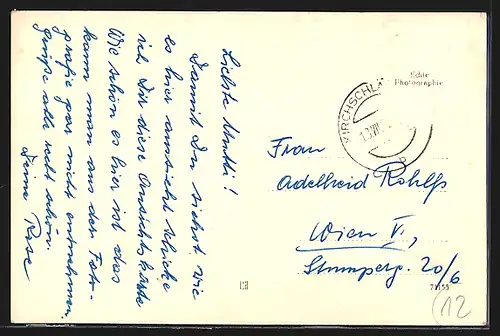 Liebste Mutti!
Damit Du siehst, wie
es hier aussieht schicke
ich Dir diese Ansichtskarte
Wie schön es hier ist das
kann man aus der Foto-
grafie gar nicht entnehmen.
grüße alle recht schön.
Deine Rose
Echte
Photographie
KIRCHSCHLA
Frau
Adelheid Rohlfs
Wien V.,
Stumperg. 20/6
(12)